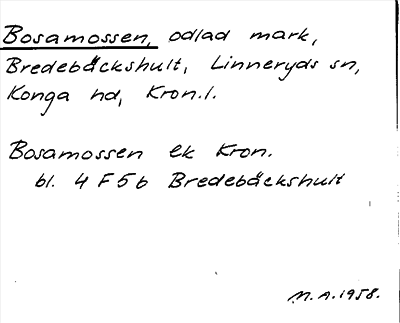 Bosamossen, odlad mark,
Bredebäckshult, Linneryds sn,
Konga hd, Kron.l.
Bosamossen ek Kron.
bl. 4 F 5 b Bredebäckshult
M.A. 1958.